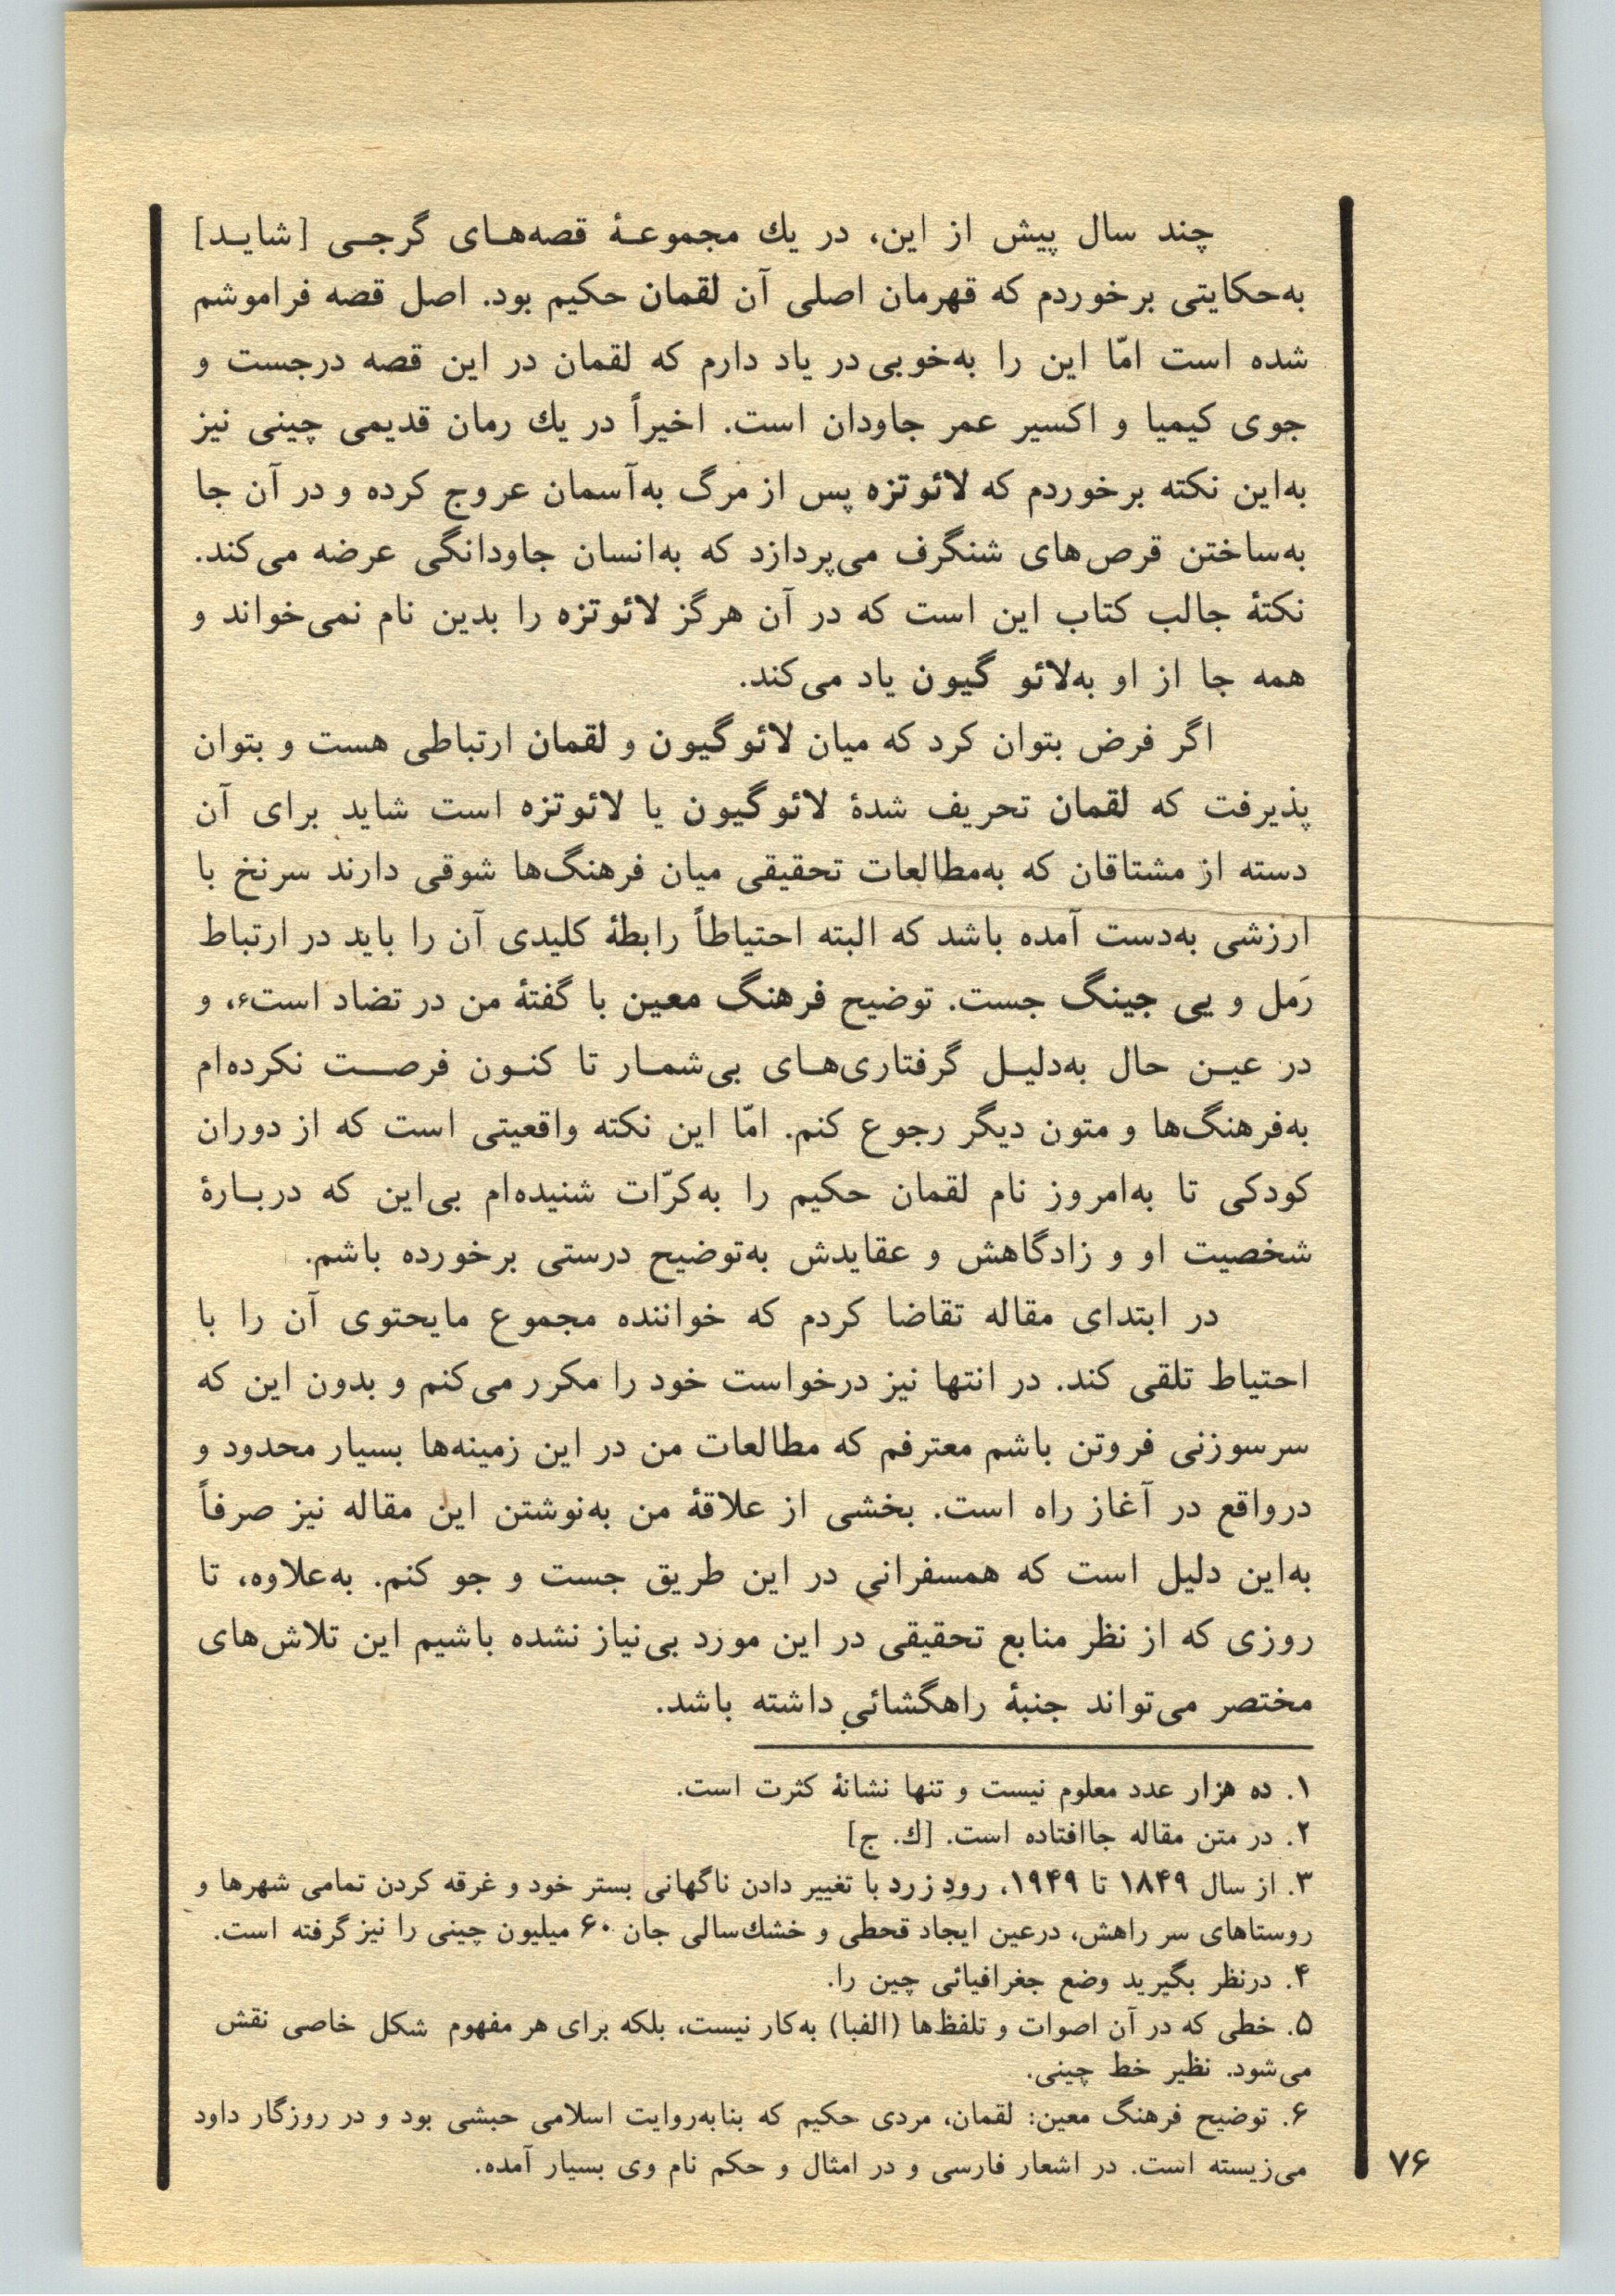 چند سال پیش از این، در یك مجموعـۀ قصه‌هـای گرجـی [شایـد]
به‌حکایتی برخوردم که قهرمان اصلی آن لقمان حکیم بود. اصل قصه فراموشم
شده است امّا این را به‌خوبی در یاد دارم که لقمان در این قصه درجست و
جوی کیمیا و اکسیر عمر جاودان است. اخیراً در یك رمان قدیمی چینی نیز
به‌این نکته برخوردم که لائوتزه پس از مرگ به‌آسمان عروج کرده و در آن جا
به‌ساختن قرص‌های شنگرف می‌پردازد که به‌انسان جاودانگی عرضه می‌کند.
نکتۀ جالب کتاب این است که در آن هرگز لائوتزه را بدین نام نمی‌خواند و
همه جا از او به‌لائو گیون یاد می‌کند.
اگر فرض بتوان کرد که میان لائوگیون و لقمان ارتباطی هست و بتوان
پذیرفت که لقمان تحریف شدۀ لائوگیون یا لائوتزه است شاید برای آن
دسته از مشتاقان که به‌مطالعات تحقیقی میان فرهنگ‌ها شوقی دارند سرنخ با
ارزشی به‌دست آمده باشد که البته احتیاطاً رابطۀ کلیدی آن را باید در ارتباط
رَمل و یی جینگ جست. توضیح فرهنگ معین با گفتۀ من در تضاد است۶، و
در عیـن حال به‌دلیـل گرفتاری‌هـای بی‌شمـار تا کنـون فرصـت نکرده‌ام
به‌فرهنگ‌ها و متون دیگر رجوع کنم. امّا این نکته واقعیتی است که از دوران
کودکی تا به‌امروز نام لقمان حکیم را به‌کرّات شنیده‌ام بی‌این که دربـارۀ
شخصیت او و زادگاهش و عقایدش به‌توضیح درستی برخورده باشم.
در ابتدای مقاله تقاضا کردم که خواننده مجموع مایحتوی آن را با
احتیاط تلقی کند. در انتها نیز درخواست خود را مکرر می‌کنم و بدون این که
سرسوزنی فروتن باشم معترفم که مطالعات من در این زمینه‌ها بسیار محدود و
درواقع در آغاز راه است. بخشی از علاقۀ من به‌نوشتن این مقاله نیز صرفاً
به‌این دلیل است که همسفرانی در این طریق جست و جو کنم. به‌علاوه، تا
روزی که از نظر منابع تحقیقی در این مورد بی‌نیاز نشده باشیم این تلاش‌های
مختصر می‌تواند جنبۀ راهگشائی داشته باشد.
۱. ده هزار عدد معلوم نیست و تنها نشانۀ کثرت است.
۲. در متن مقاله جاافتاده است. [ك. ج]
۳. از سال ۱۸۴۹ تا ۱۹۴۹، رودِ زرد با تغییر دادن ناگهانی بستر خود و غرقه کردن تمامی شهرها و
روستاهای سر راهش، درعین ایجاد قحطی و خشك‌سالی جان ۶۰ میلیون چینی را نیز گرفته است.
۴. درنظر بگیرید وضع جغرافیائی چین را.
۵. خطی که در آن اصوات و تلفظ‌ها (الفبا) به‌کار نیست، بلکه برای هر مفهوم شکل خاصی نقش
می‌شود. نظیر خط چینی.
۶. توضیح فرهنگ معین: لقمان، مردی حکیم که بنابه‌روایت اسلامی حبشی بود و در روزگار داود
می‌زیسته است. در اشعار فارسی و در امثال و حکم نام وی بسیار آمده.
۷۶